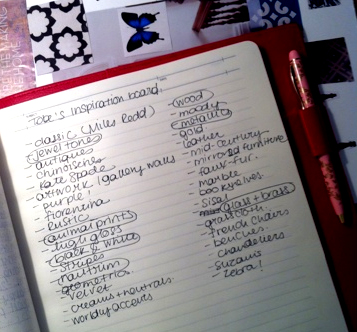 Tobe's Inspiration board.
- classic (Miles Redd)
- jewel tones
- antiques
- chinoiserie
- Kate Spade
- artwork (gallery walls
- purple!
- fiorentina
- rustic
- animal prints
- high gloss
- black & white
- stripes
- nautrum
- geometrics
- velvet
- creams + neutrals
- worldly accents
- wood
- moody
- metallics
- gold
- leather
- mid-century
- mirrored furniture
- faux-fur
- marble
- bookshelves
- Sisal
- glass + brass
- grasscloth
- french chairs
- benches
- chandeliers
- suzanis
- zebra!